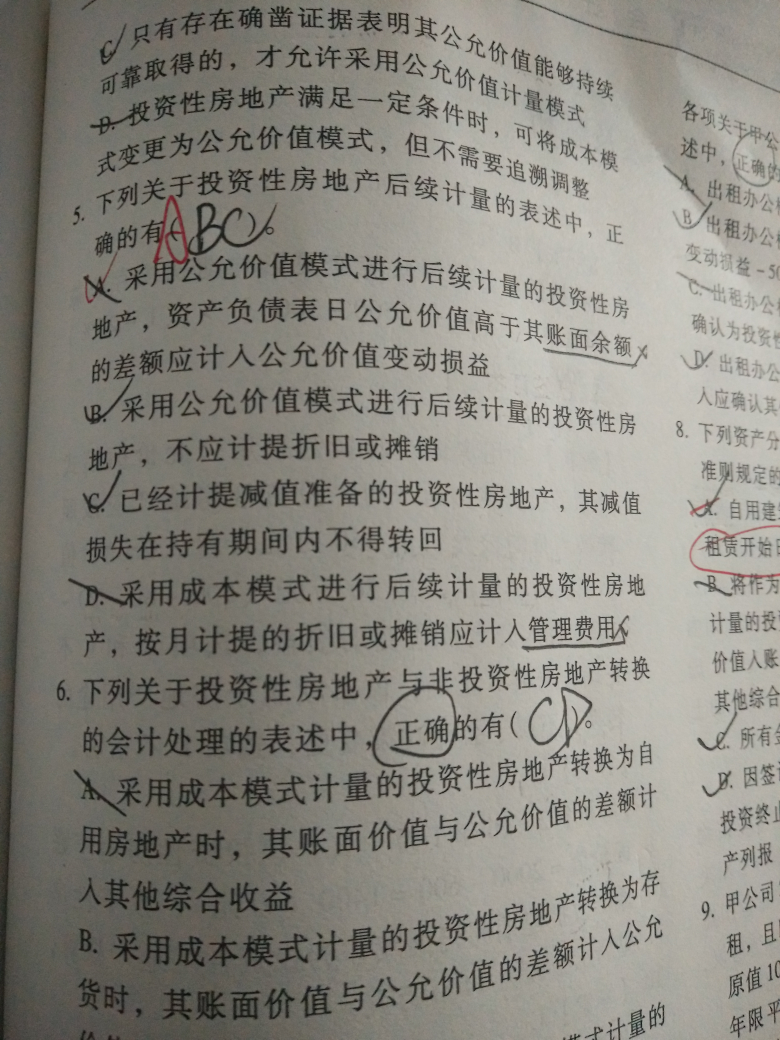 C. 只有存在确凿证据表明其公允价值能够持续
可靠取得的，才允许采用公允价值计量模式
D. 投资性房地产满足一定条件时，可将成本模
式变更为公允价值模式，但不需要追溯调整
5. 下列关于投资性房地产后续计量的表述中，正
确的有( ABC )。
A. 采用公允价值模式进行后续计量的投资性房
地产，资产负债表日公允价值高于其账面余额
的差额应计入公允价值变动损益
B. 采用公允价值模式进行后续计量的投资性房
地产，不应计提折旧或摊销
C. 已经计提减值准备的投资性房地产，其减值
损失在持有期间内不得转回
D. 采用成本模式进行后续计量的投资性房地
产，按月计提的折旧或摊销应计入管理费用
6. 下列关于投资性房地产与非投资性房地产转换
的会计处理的表述中，正确的有( CD )。
A. 采用成本模式计量的投资性房地产转换为自
用房地产时，其账面价值与公允价值的差额计
入其他综合收益
B. 采用成本模式计量的投资性房地产转换为存
货时，其账面价值与公允价值的差额计入公允
模式计量的
各项关于甲公
述中，正确的
A. 出租办公
B. 出租办公
变动损益-50
C. 出租办公
确认为投资性
D. 出租办公
人应确认其
8. 下列资产分
准则规定的
A. 自用建
租赁开始日
B. 将作为
计量的投
价值入账
其他综合
C. 所有
D. 因签
投资终止
产列报
9. 甲公司
租，且
原值10
年限平